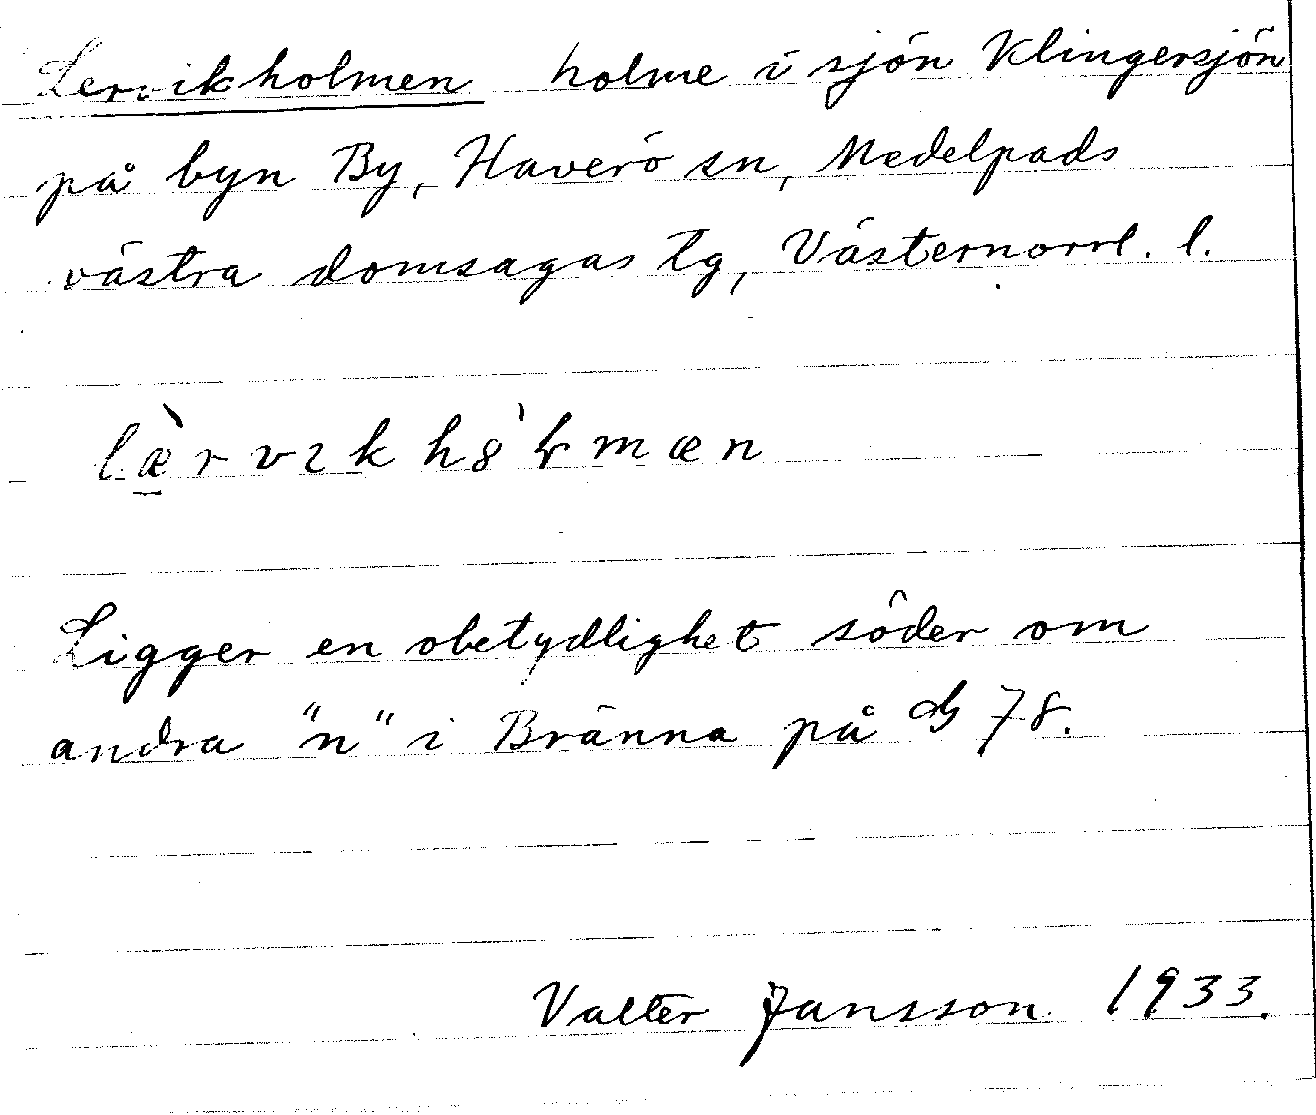 Lervikholmen holme i sjön Klingersjön
på byn By, Haverö sn, Medelpads
västra domsagas tg, Västernorrl. l.
Ligger en obetydlighet söder om
andra "n" i Bränna på G 78.
Valter Jansson 1933.